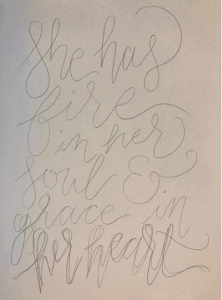 She has
fire
in her
soul &
grace in
her heart